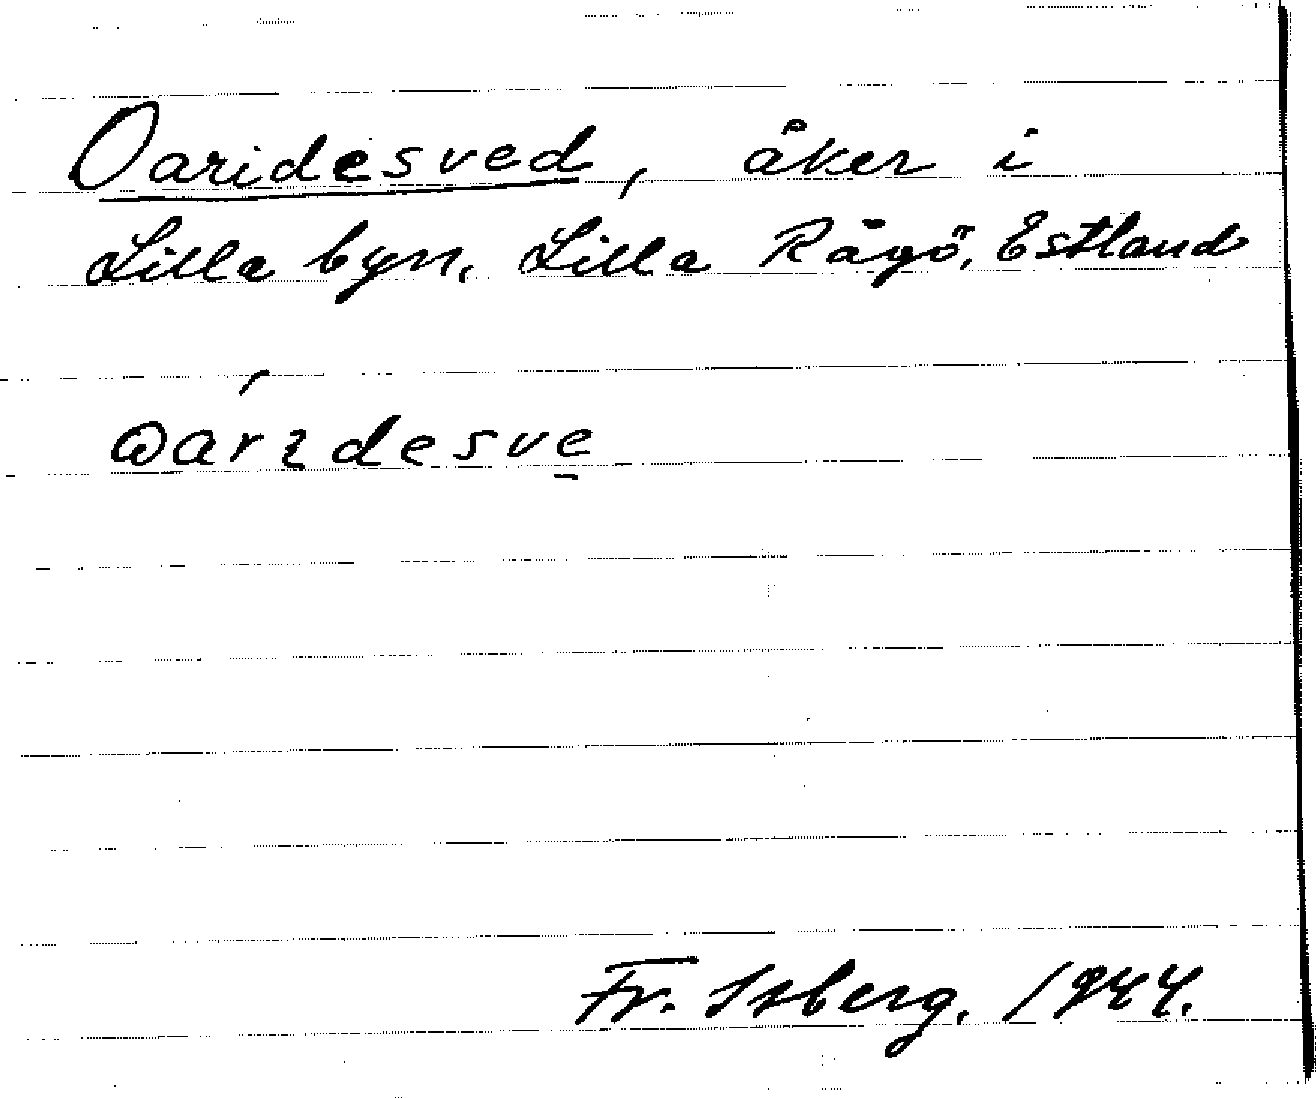 Oaridesved, åker i
Lilla byn, Lilla Rågö, Estland
ωaŕɿdesve̱
Fr. Isberg. 1944.